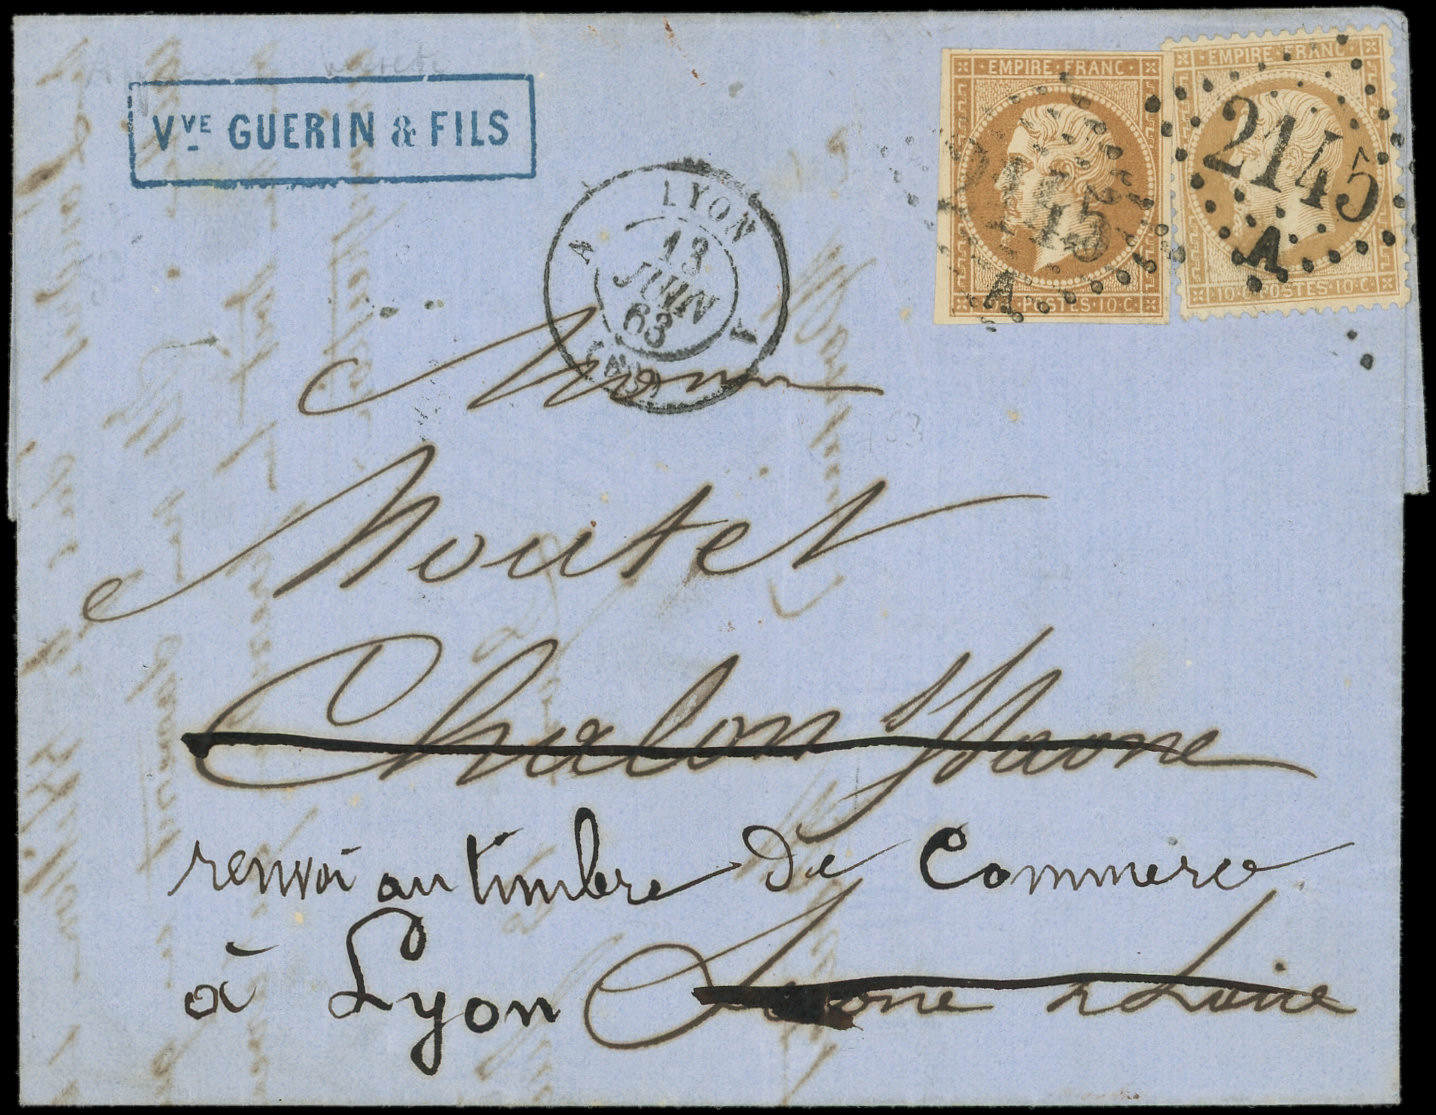 Vve GUERIN & FILS
EMPIRE · FRANC
POSTES · 10 · C ·
EMPIRE · FRANC
10 · C · POSTES · 10 · C ·
2145
A
45
A
LYON
13
JUIN
63
Moutet
Chalon S/Saone
renvoi au timbre de Commerce
à Lyon Saone & Loire